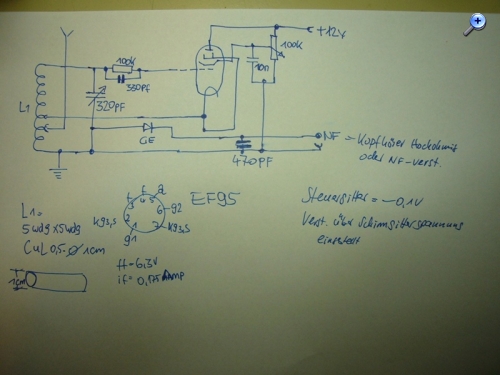 +12V
100k
100k
330pF
10n
L1
320pF
GE
NF - Kopfhörer Hochohmig
oder NF-Verst.
470pF
EF95
L1=
5 wdg x 5 wdg
CuL 0,5 - ø 1cm
1cm
1
3
4
5
6
7
2
g2
g1
k g3,5
k g3,5
ff = 6,3V
if = 0,175 Amp
Steuergitter = -0,1V
Verst. über Schirmgitterspannung